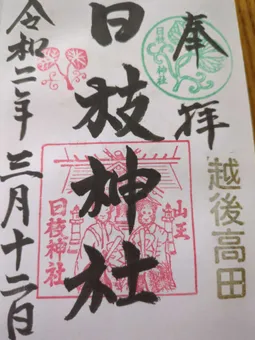 奉拝
日枝神社
越後高田
山王
日枝神社
日枝神社
令和二年三月十二日